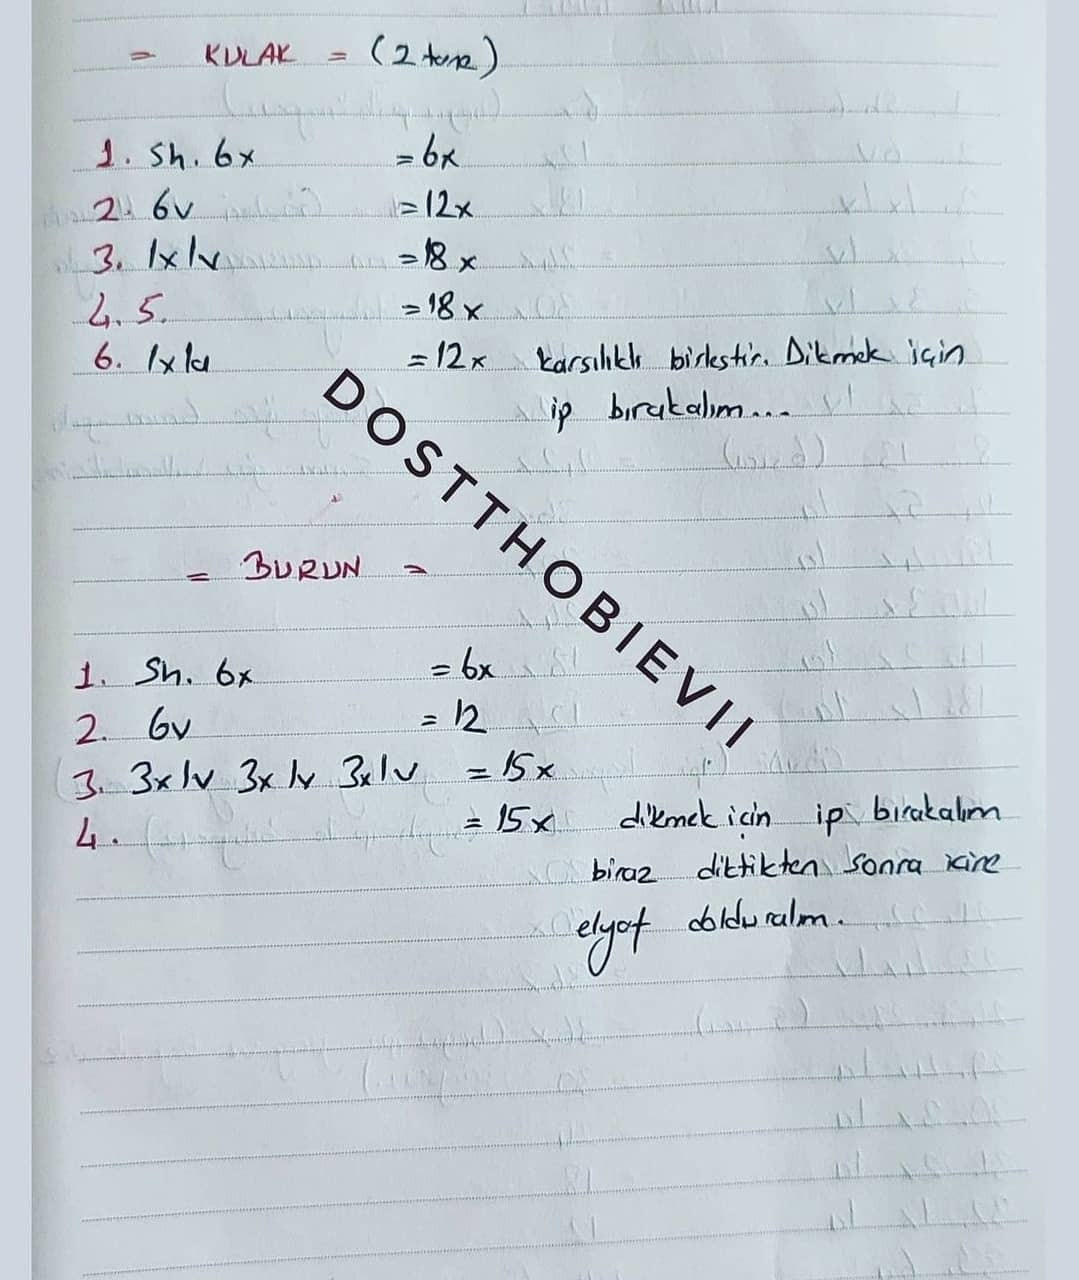 = KULAK = (2 tane)
1. Sh. 6x = 6x
2. 6v = 12x
3. 1x1v = 18x
4. 5. = 18x
6. 1x1a = 12x karşılıklı birleştir. Dikmek için
ip bırakalım...
DOSTTHOBIEVII
= BURUN =
1. Sh. 6x = 6x
2. 6v = 12
3. 3x1v 3x1v 3x1v = 15x
4. = 15x dikmek için ip bırakalım
biraz diktikten sonra içine
elyaf dolduralım.